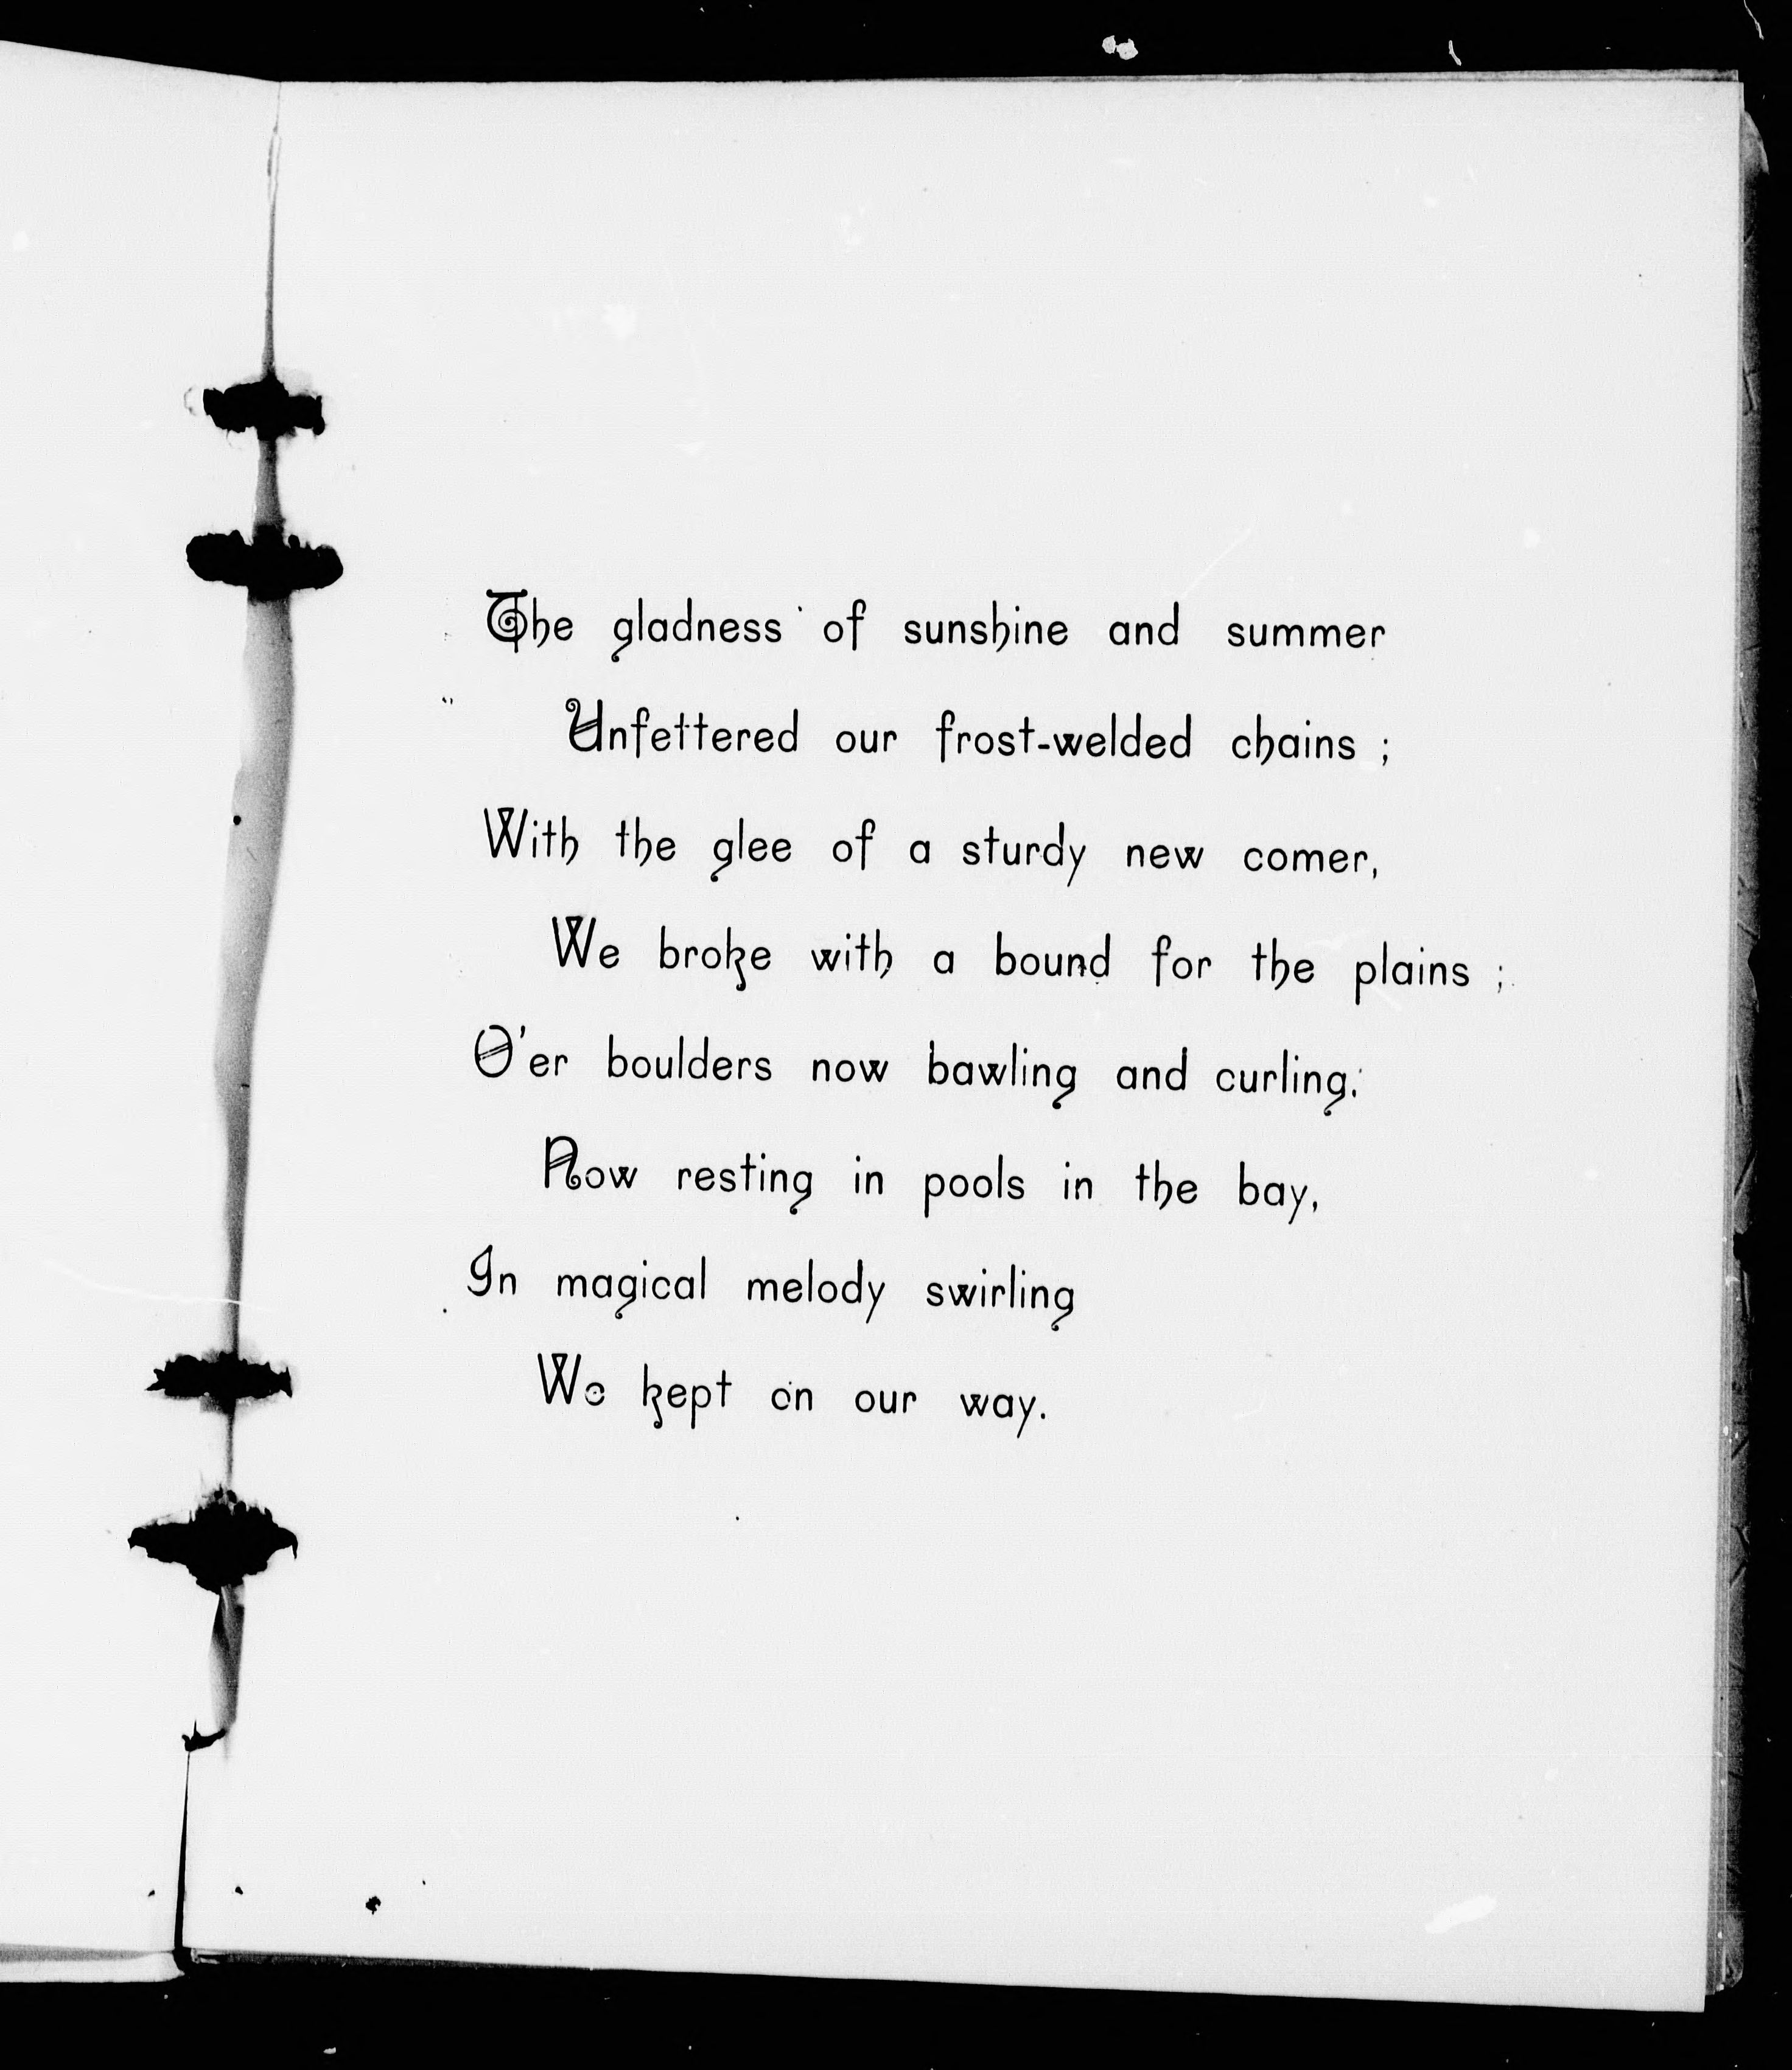 The gladness of sunshine and summer
Unfettered our frost-welded chains ;
With the glee of a sturdy new comer,
We broke with a bound for the plains ;
O'er boulders now bawling and curling,
Now resting in pools in the bay,
In magical melody swirling
We kept on our way.